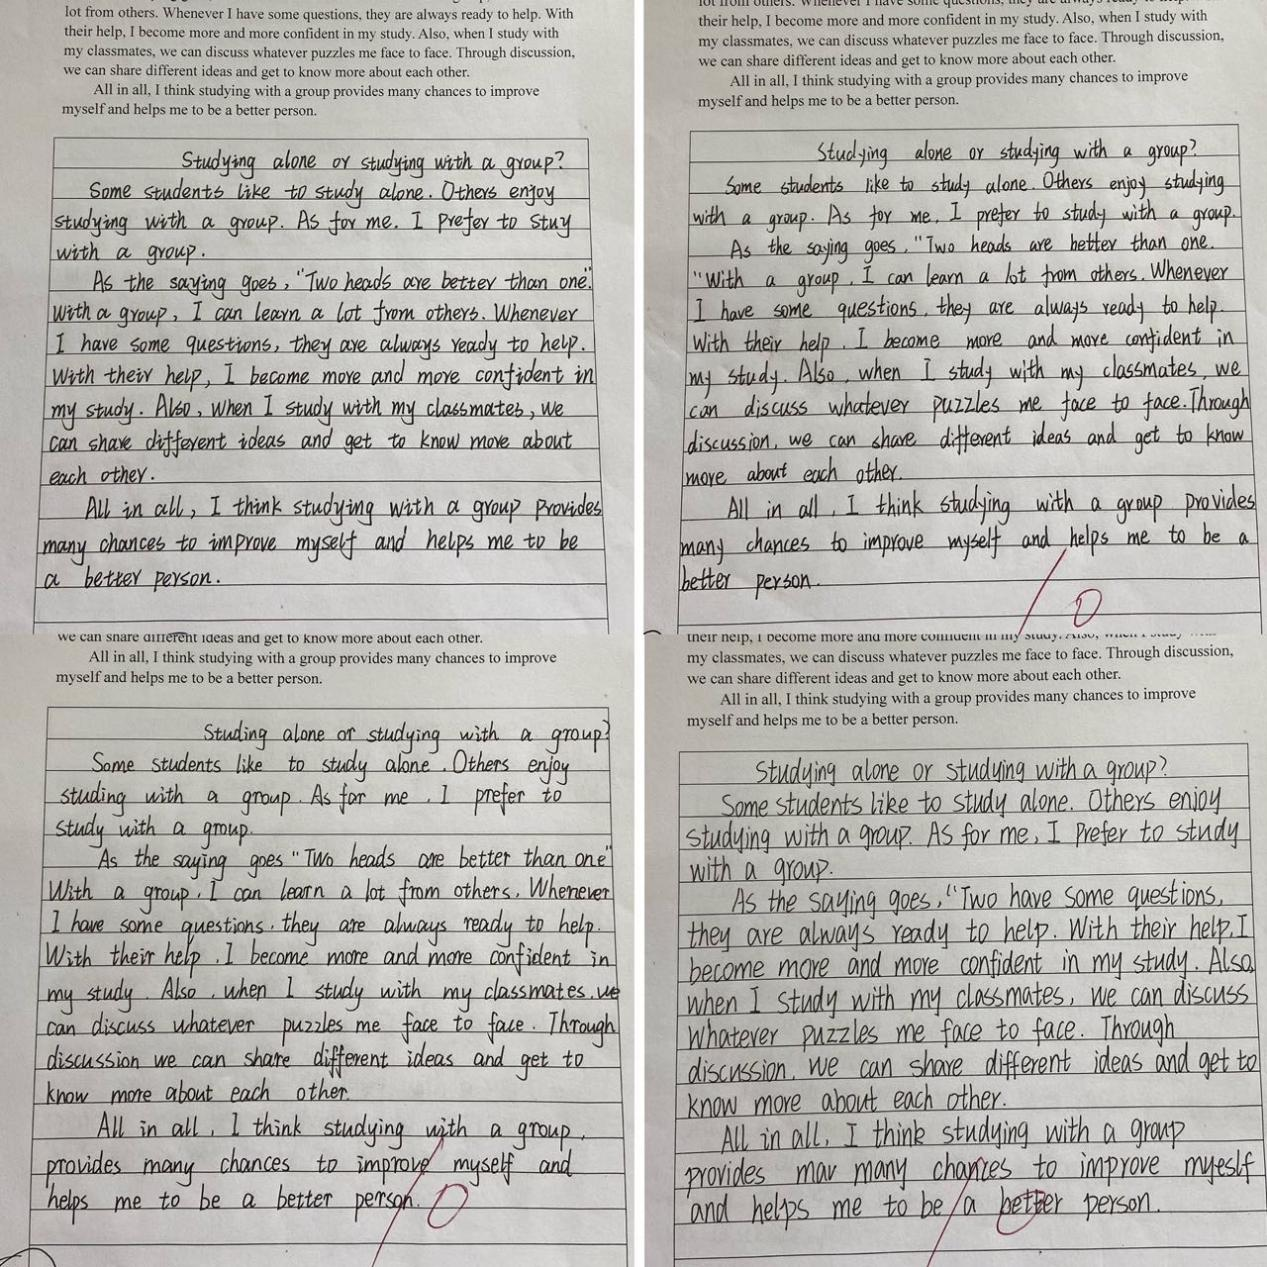 lot from others. Whenever I have some questions, they are always ready to help. With
their help, I become more and more confident in my study. Also, when I study with
my classmates, we can discuss whatever puzzles me face to face. Through discussion,
we can share different ideas and get to know more about each other.
All in all, I think studying with a group provides many chances to improve
myself and helps me to be a better person.
Studying alone or studying with a group?
Some students like to study alone. Others enjoy
studying with a group. As for me. I prefer to stuy
with a group.
As the saying goes, "Two heads are better than one."
With a group, I can learn a lot from others. Whenever
I have some questions, they are always ready to help.
With their help, I become more and more confident in
my study. Also, when I study with my classmates, we
can share different ideas and get to know more about
each other.
All in all, I think studying with a group provides
many chances to improve myself and helps me to be
a better person.
their help, I become more and more confident in my study. Also, when I study with
my classmates, we can discuss whatever puzzles me face to face. Through discussion,
we can share different ideas and get to know more about each other.
All in all, I think studying with a group provides many chances to improve
myself and helps me to be a better person.
Studying alone or studying with a group?
Some students like to study alone. Others enjoy studying
with a group. As for me, I prefer to study with a group.
As the saying goes, "Two heads are better than one.
"With a group, I can learn a lot from others. Whenever
I have some questions, they are always ready to help.
With their help, I become more and more confident in
my study. Also, when I study with my classmates, we
can discuss whatever puzzles me face to face. Through
discussion, we can share different ideas and get to know
more about each other.
All in all, I think studying with a group provides
many chances to improve myself and helps me to be a
better person.
we can share different ideas and get to know more about each other.
All in all, I think studying with a group provides many chances to improve
myself and helps me to be a better person.
Studing alone or studying with a group?
Some students like to study alone. Others enjoy
studing with a group. As for me, I prefer to
study with a group.
As the saying goes "Two heads are better than one"
With a group, I can learn a lot from others. Whenever
I have some questions, they are always ready to help.
With their help, I become more and more confident in
my study. Also, when I study with my classmates, we
can discuss whatever puzzles me face to face. Through
discussion we can share different ideas and get to
know more about each other.
All in all, I think studying with a group,
provides many chances to improve myself and
helps me to be a better person.
their help, I become more and more confident in my study. Also, when I study
my classmates, we can discuss whatever puzzles me face to face. Through discussion,
we can share different ideas and get to know more about each other.
All in all, I think studying with a group provides many chances to improve
myself and helps me to be a better person.
Studying alone or studying with a group?
Some students like to study alone. Others enjoy
studying with a group. As for me, I prefer to study
with a group.
As the saying goes, "Two have some questions,
they are always ready to help. With their help, I
become more and more confident in my study. Also,
when I study with my classmates, we can discuss
whatever puzzles me face to face. Through
discussion, we can share different ideas and get to
know more about each other.
All in all, I think studying with a group
provides mav many chances to improve myeslf
and helps me to be a better person.